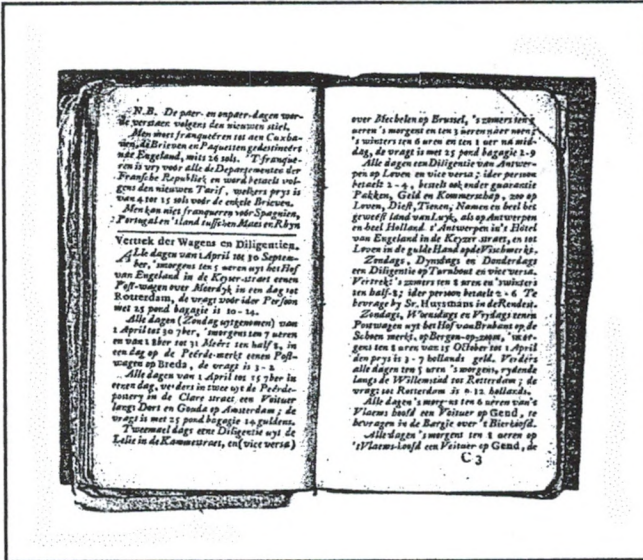 N.B. De paer- en onpaer-dagen wor-
de verstaen volgens den nieuwen stiel.
Men moet franqueéren tot aen Cuxha-
ven, de Brieven en Paquetten gedestineért
nae Engeland, mits 26 sols. 'T franque-
ren is vry voór alle de Departementen der
Fransche Republiek en word betaelt vol-
gens den nieuwen Tarif, welkers prys is
van 4 tot 15 sols voór de enkele Brieven.
Men kan niet franqueren voór Spagnien,
Portugal en 'tland tusschen Maes en Rhyn
Vertrek der Wagens en Diligentien.
ALle dagen van 1 April tot 30 Septem-
ber, 'smorgens ten 5 ueren uyt het Hof
van Engeland in de Keyser-straet eenen
Post-wagen over Moerdyk in een dag tot
Rotterdam, de vragt voór ider Persoon
met 25 pond bagagie is 10-14.
Alle dagen (Zondag uytgenomen) van
1 April tot 30 7ber, 'smorgens ten 7 ueren
en van 1 8ber tot 31 Meért ten half 8, in
een dag op de Peérde-merkt eenen Post-
wagen op Breda, de vragt is 3-2
Alle dagen van 1 April tot 15 7ber in
eenen dag, verders in twee uyt de Peérde-
postery in de Clare straet een Voituer
langs Dort en Gouda op Amsterdam; de
vragt is met 25 pond bagagie 14 guldens.
Tweemael dags eene Diligentie uyt de
Lelie in de Kammestraet, en (vice versa)
over Mechelen op Brussel, 's zomers ten 7
ueren 's morgens en ten 3 ueren naer noen;
's winters ten 8 uren en ten 1 uer na mid-
dag, de vragt is met 25 pond bagagie 2-9
Alle dagen een Diligentie van Antwer-
pen op Loven en vice versa; ider persoon
betaelt 2-4, bestelt ook onder guarantie
Pakken, Geld en Kommerschap, zoo op
Loven, Diest, Tienen, Namen en heel het
geweest land van Luyk, als op Antwerpen
en heel Holland. t'Antwerpen in 't Hôtel
van Engeland in de Keyzer straet, en tot
Loven in de gulde Hand op de Vischmerkt.
Zondags, Dynsdags en Donderdags
een Diligentie op Turnhout en vice versa.
Vertrekt 's zomers ten 8 uren en 'swinters
ten half-8; ider persoon betaelt 2-6 Te
bevrage by Sr. Huysmans in de Rendest.
Zondags, Woensdags en Vrydags eenen
Postwagen uyt het Hof van Brabant op de
Schoen merkt, op Bergen-op-zoom, 'smor-
gens ten 8 uren van 15 October tot 1 April
den prys is 3-7 hollands geld. Verders
alle dagen ten 5 uren 's morgens, rydende
langs de Willemstad tot Rotterdam; de
vragt tot Rotterdam is 9-12 hollands.
Alle dagen 's morgens ten 6 ueren van 't
Vlaems hoofd een Voituer op Gend, te
bevragen in de Bargie over 't Bierhoofd.
Alle dagen 's morgens ten 8 ueren op
't Vlaems-hoofd een Voituer op Gend, de
C 3